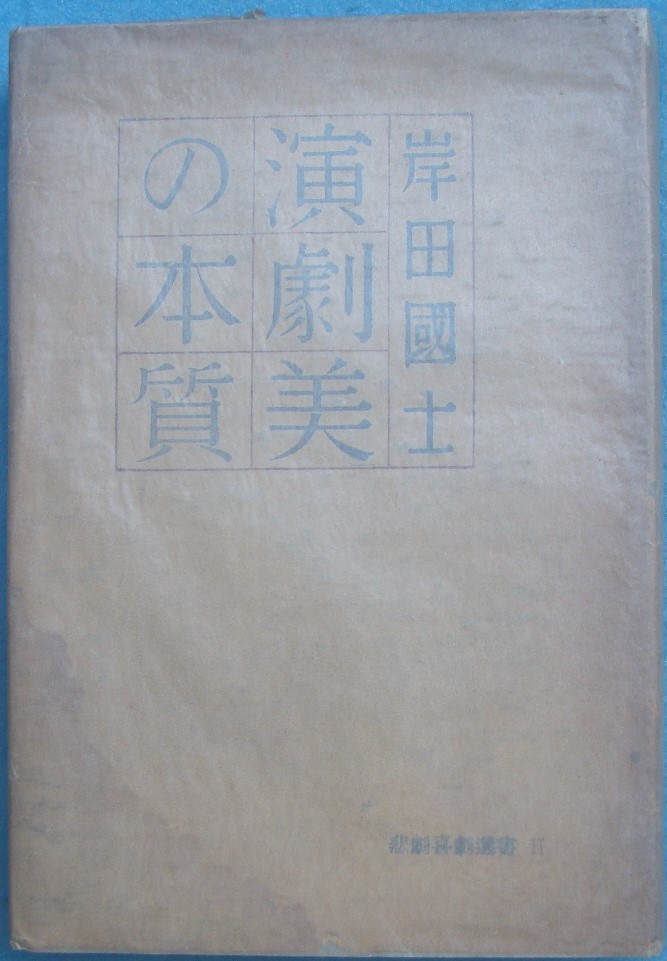 岸田國士
演劇美
の本質
悲劇喜劇選書 II